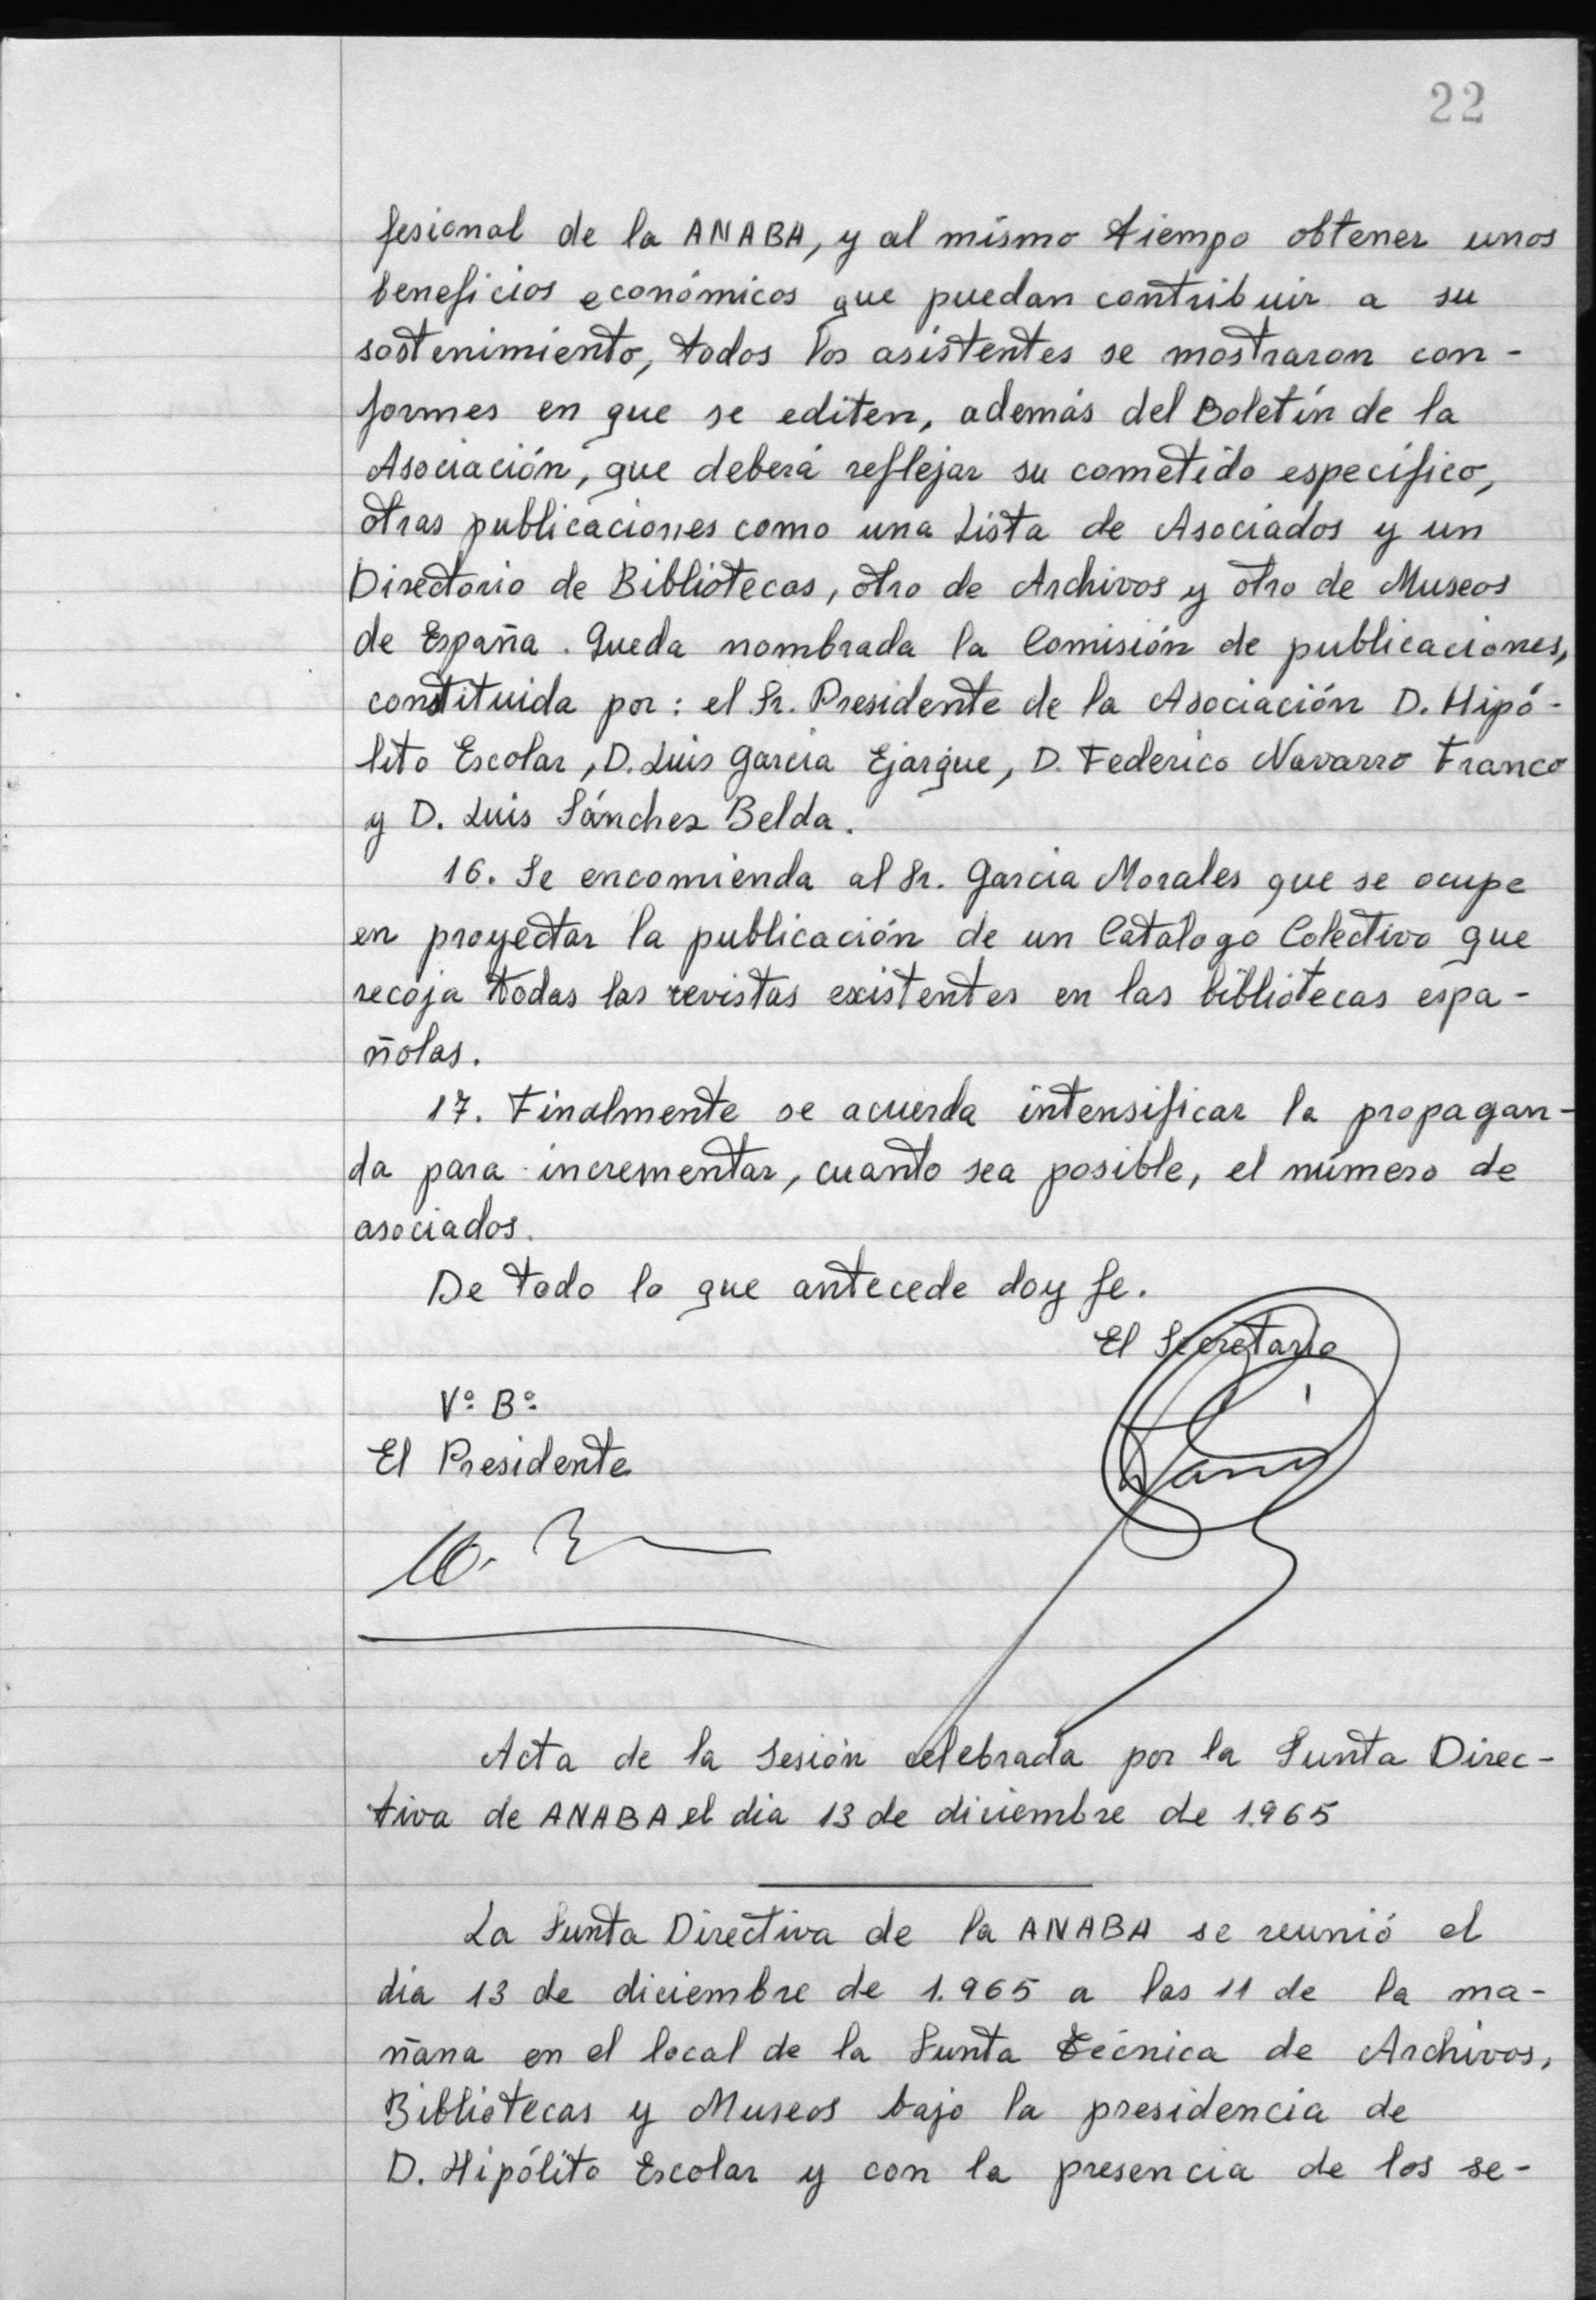 22
fesional de la ANABA, y al mismo tiempo obtener unos
beneficios económicos que puedan contribuir a su
sostenimiento, todos los asistentes se mostraron con-
formes en que se editen, además del Boletín de la
Asociación, que deberá reflejar su cometido específico,
otras publicaciones como una Lista de Asociados y un
Directorio de Bibliotecas, otro de Archivos y otro de Museos
de España. Queda nombrada la Comisión de publicaciones,
constituida por: el Sr. Presidente de la Asociación D. Hipó-
lito Escolar, D. Luis García Ejarque, D. Federico Navarro Franco
y D. Luis Sánchez Belda.
16. Se encomienda al Sr. García Morales que se ocupe
en proyectar la publicación de un Catálogo Colectivo que
recoja todas las revistas existentes en las bibliotecas espa-
ñolas.
17. Finalmente se acuerda intensificar la propagan-
da para incrementar, cuanto sea posible, el número de
asociados.
De todo lo que antecede doy fe.
El Secretario
Vº Bº
El Presidente
Acta de la Sesión celebrada por la Junta Direc-
tiva de ANABA el día 13 de diciembre de 1.965
La Junta Directiva de la ANABA se reunió el
día 13 de diciembre de 1.965 a las 11 de la ma-
ñana en el local de la Junta Técnica de Archivos,
Bibliotecas y Museos bajo la presidencia de
D. Hipólito Escolar y con la presencia de los se-